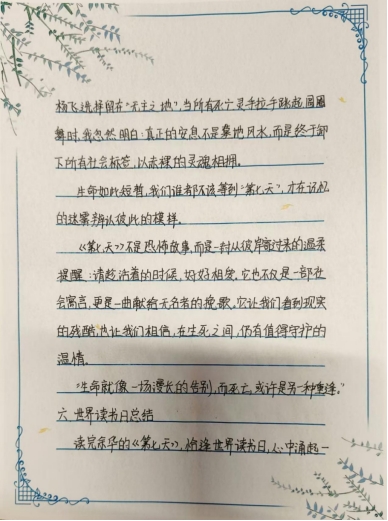 杨飞选择留在“无主之地”,当所有死亡灵手拉手跳起圆圈
舞时,我忽然明白:真正的安息,不是墓地风水,而是终于卸
下所有社会标签,以赤裸的灵魂相拥。
生命如此短暂,我们谁都不该等到“第七天”,才在记忆
的迷雾辨认彼此的模样。
《第七天》不是恐怖故事,而是一封从彼岸寄过来的温柔
提醒:请趁活着的时候,好好相爱。它也不仅是一部社
会寓言,更是一曲献给无名者的挽歌。它让我们看到现实
的残酷,也让我们相信,在生死之间,仍有值得守护的
温情。
“生命就像一场漫长的告别,而死亡,或许是另一种重逢。”
六、世界读书日总结
读完余华的《第七天》,恰逢世界读书日,心中涌起一